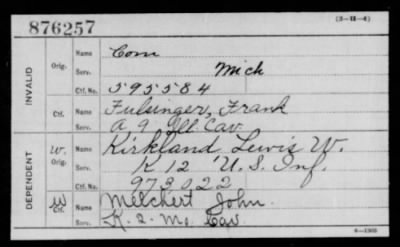 876257
(3—H—4)
INVALID
Orig.
Name
Com
Serv.
Mich
Ctf. No.
595584
Ctf.
Name
Fulsinger, Frank
Serv.
A 9 Ill Cav.
DEPENDENT
W.
Orig.
Name
Kirkland, Lewis W.
Serv.
K 12 U.S. Inf.
Ctf. No.
973022
W
Ctf.
Name
Melchert John.
Serv.
K. 2. Mo. Cav.
6—1303